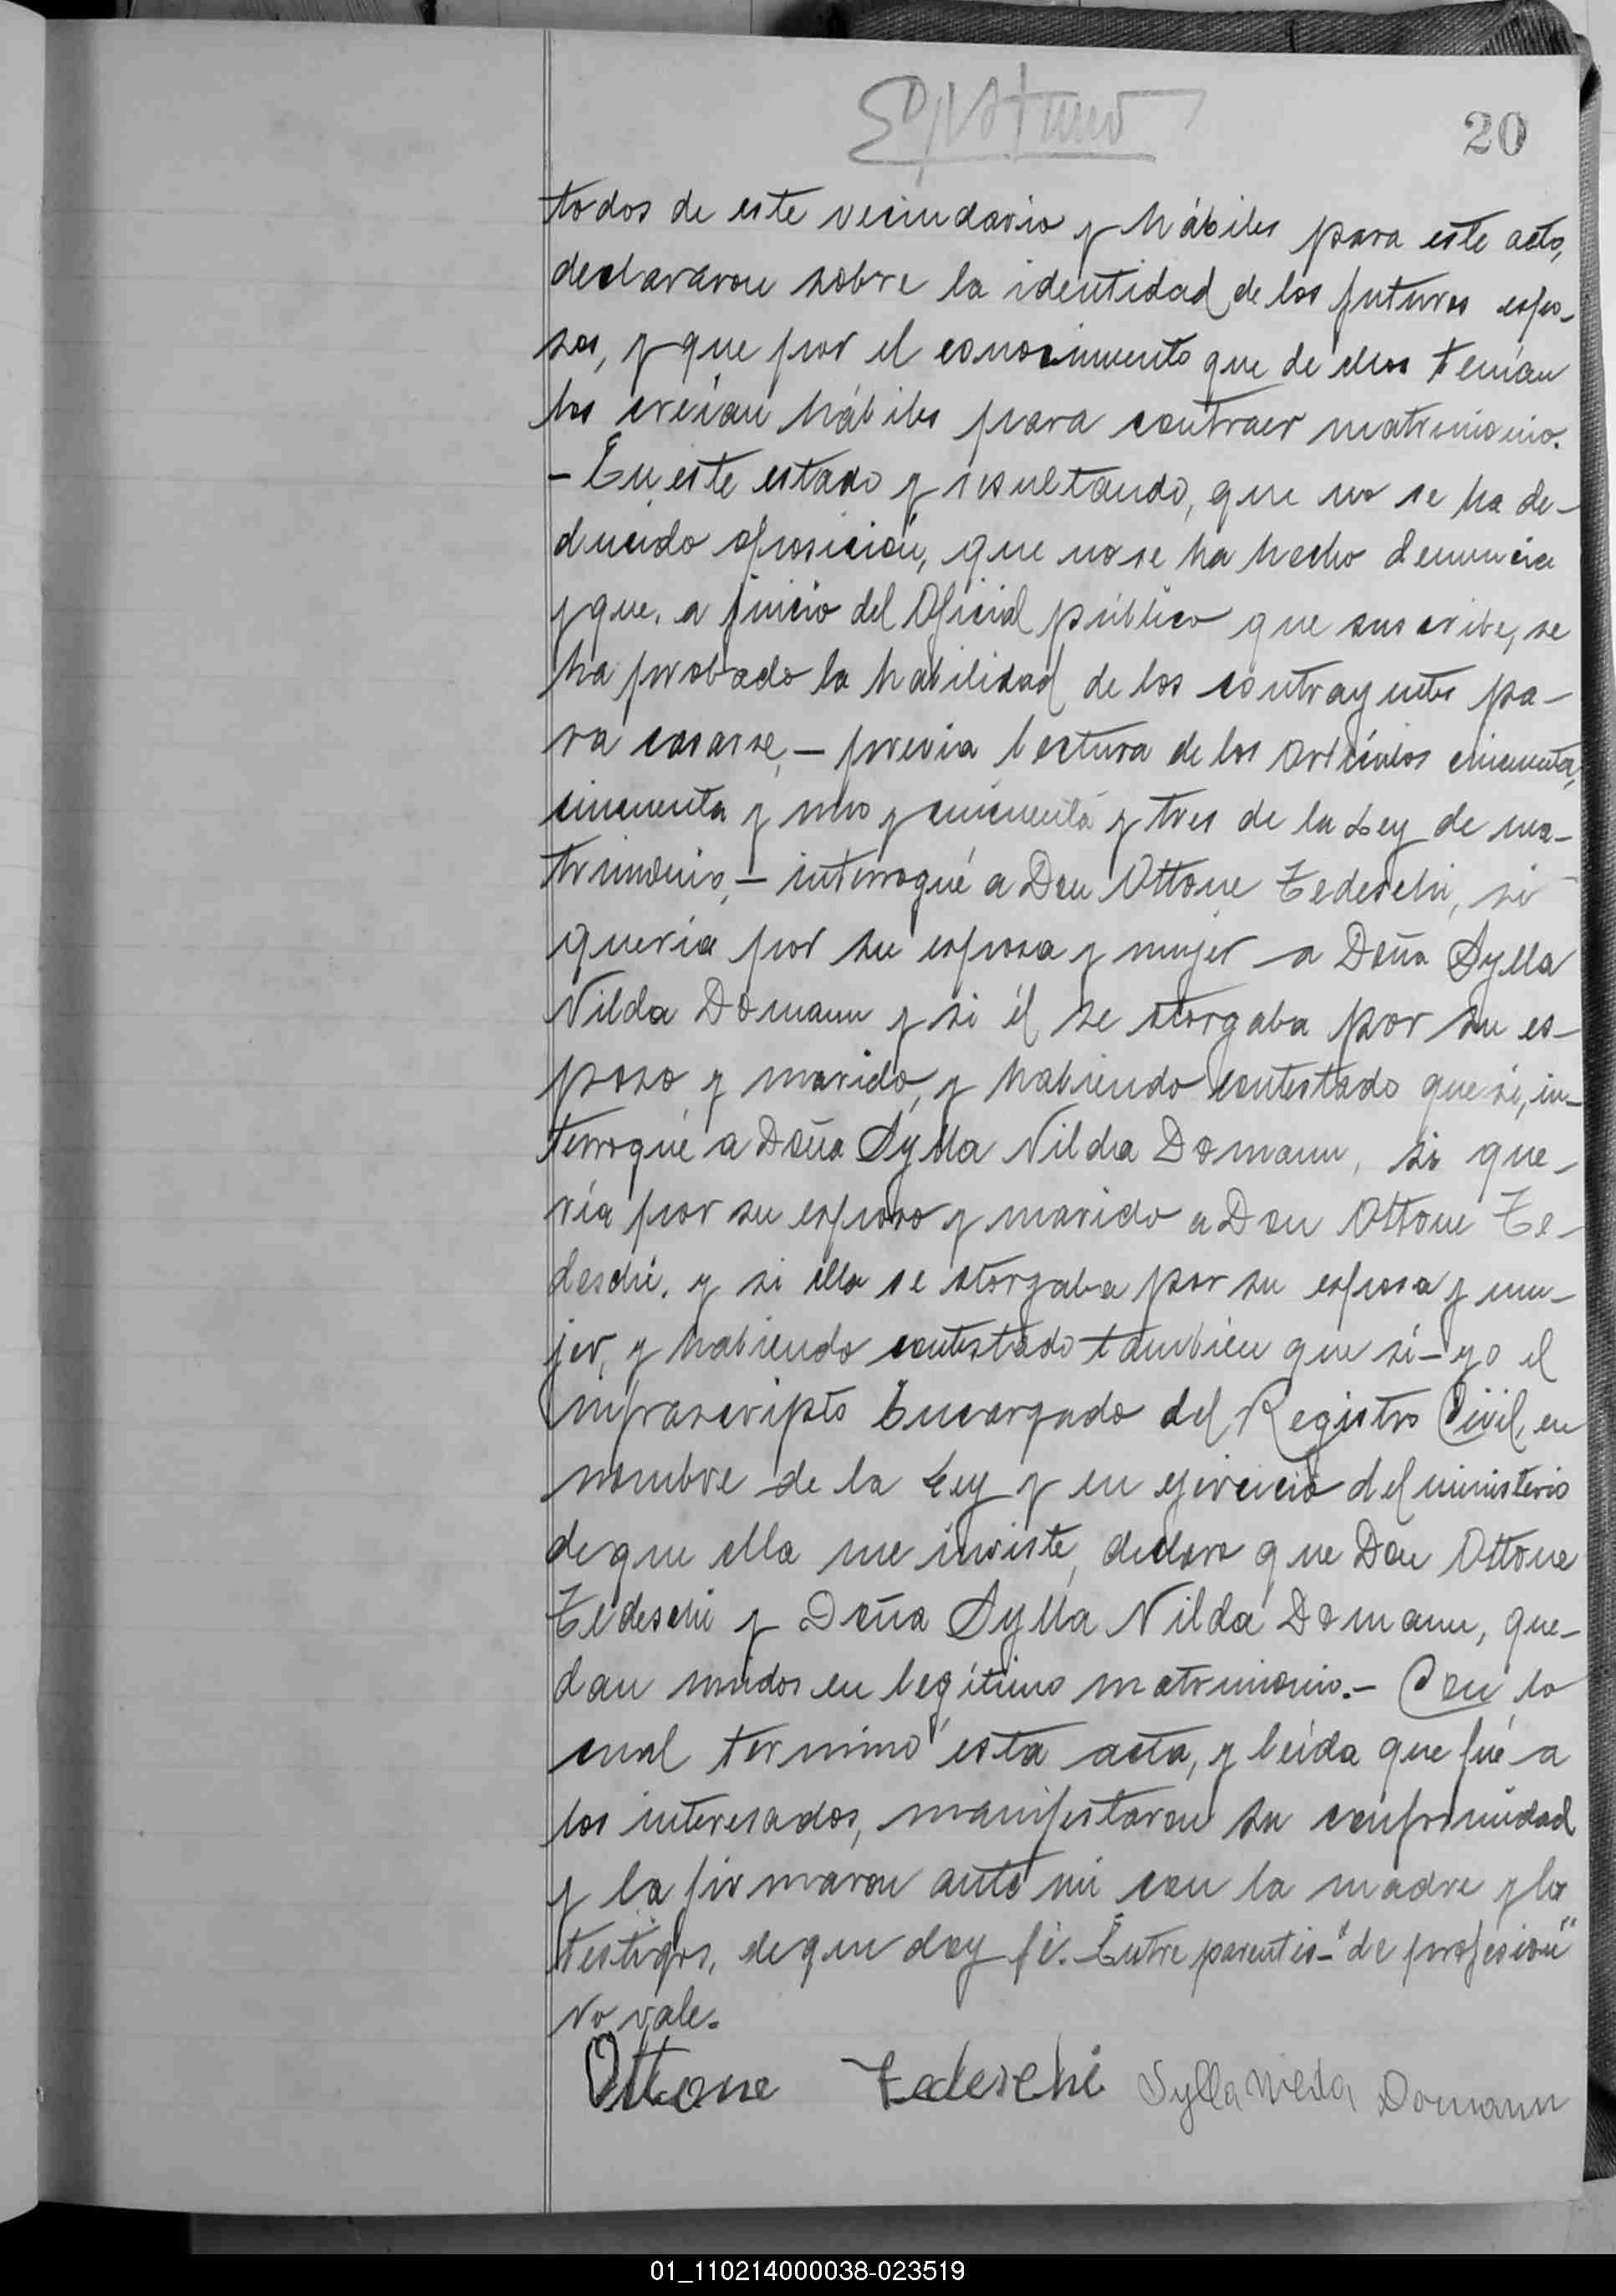 20
todos de este vecindario y hábiles para este acto,
declararon sobre la identidad de los futuros espo-
sos, y que por el conocimiento que de ellos tenían
los creían hábiles para contraer matrimonio.
- En este estado y resultando, que no se ha de-
ducido oposición, que no se ha hecho denuncia
y que, a juicio del Oficial público que suscribe, se
ha probado la habilidad de los contrayentes pa-
ra casarse, - previa lectura de los artículos cincuenta,
cincuenta y uno y cincuenta y tres de la Ley de ma-
trimonio, - interrogué a Don Ottone Tedeschi, si
quería por su esposa y mujer a Doña Sylla
Nilda Domann y si él se otorgaba por su es-
poso y marido, y habiendo contestado que sí, in-
terrogué a Doña Sylla Nilda Domann, si que-
ría por su esposo y marido a Don Ottone Te-
deschi, y si ella se otorgaba por su esposa y mu-
jer, y habiendo contestado también que sí - yo el
infrascripto Encargado del Registro Civil, en
nombre de la Ley y en ejercicio del ministerio
de que ella me inviste, declaro que Don Ottone
Tedeschi y Doña Sylla Nilda Domann, que-
dan unidos en legítimo matrimonio.- Con lo
cual terminó esta acta, y leída que fué a
los interesados, manifestaron su conformidad
y la firmaron ante mi con la madre y los
testigos, de que doy fé. Entre parentis - "de profesión"
No vale.
Ottone Tedeschi Sylla Nilda Domann
01_110214000038-023519